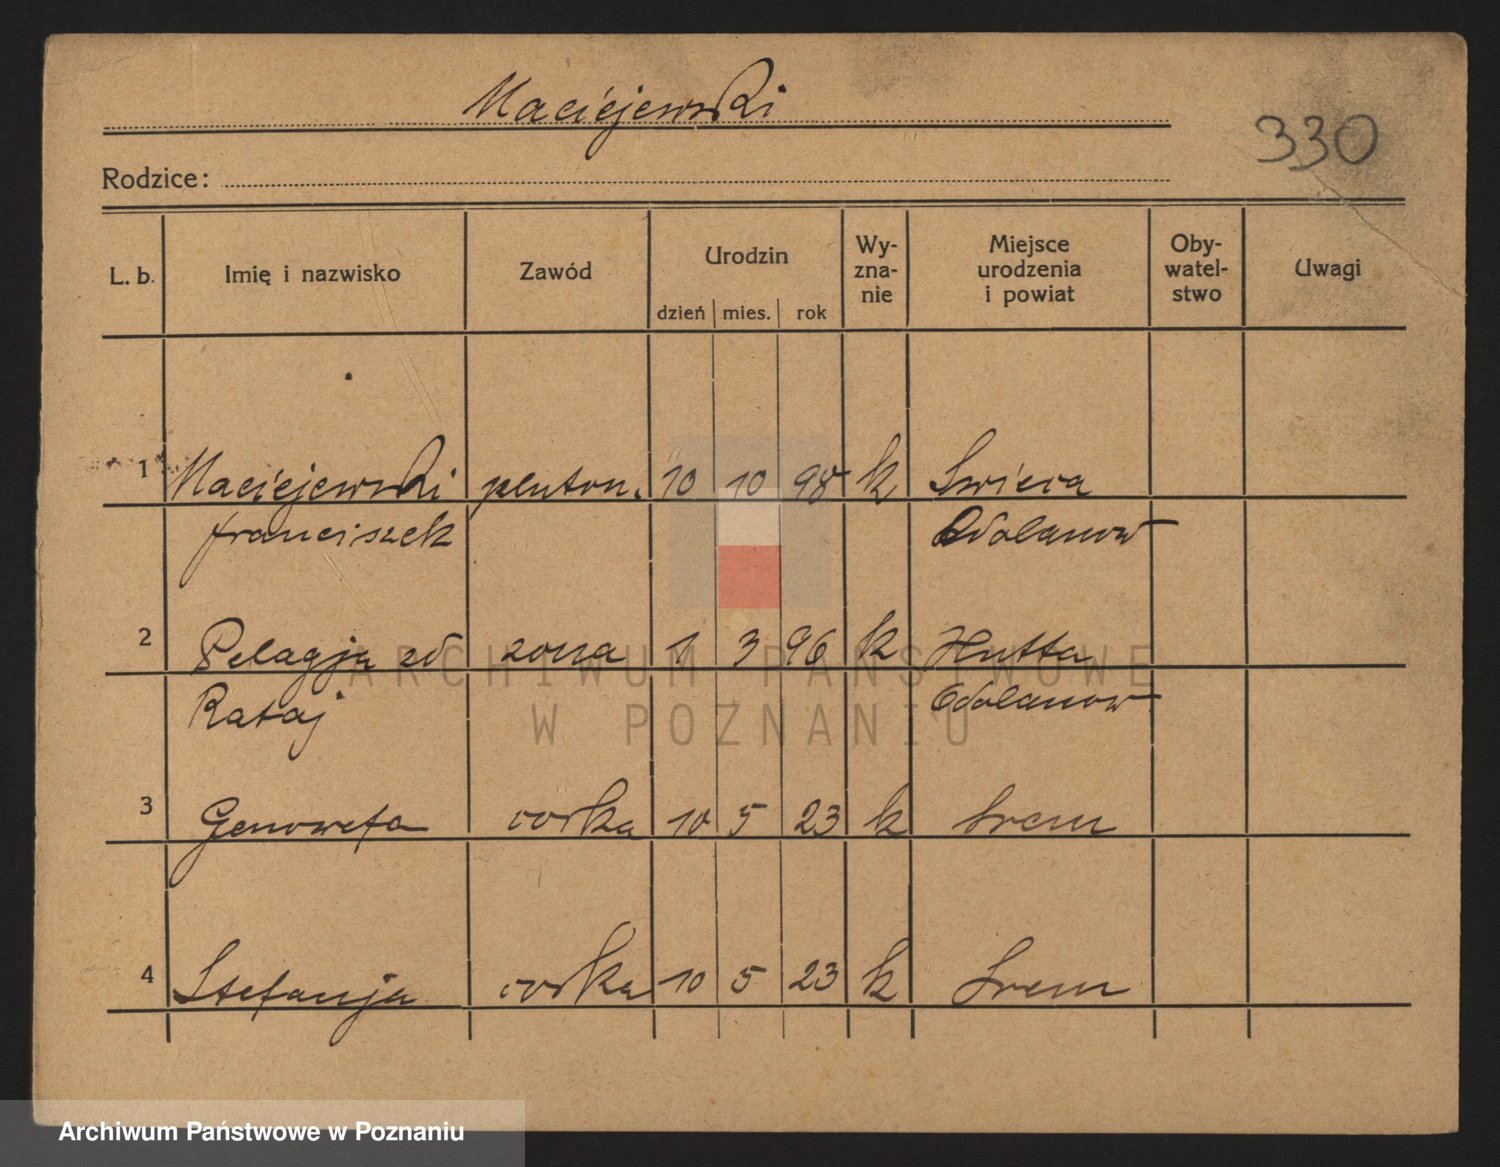 Maciejewski
330
Rodzice:
L. b. Imię i nazwisko Zawód Urodzin dzień mies. rok Wy-zna-nie Miejsce urodzenia i powiat Oby-watel-stwo Uwagi
1 Maciejewski pluton. 10 10 98 k Swieca
franciszek Odolanow
2 Pelagja zd zona 1 3 96 k Hutta
Rataj Odolanow
3 Genowefa corka 10 5 23 k Srem
4 Stefanja corka 10 5 23 k Srem
ARCHIWUM PAŃSTWOWE
W POZNANIU
Archiwum Państwowe w Poznaniu